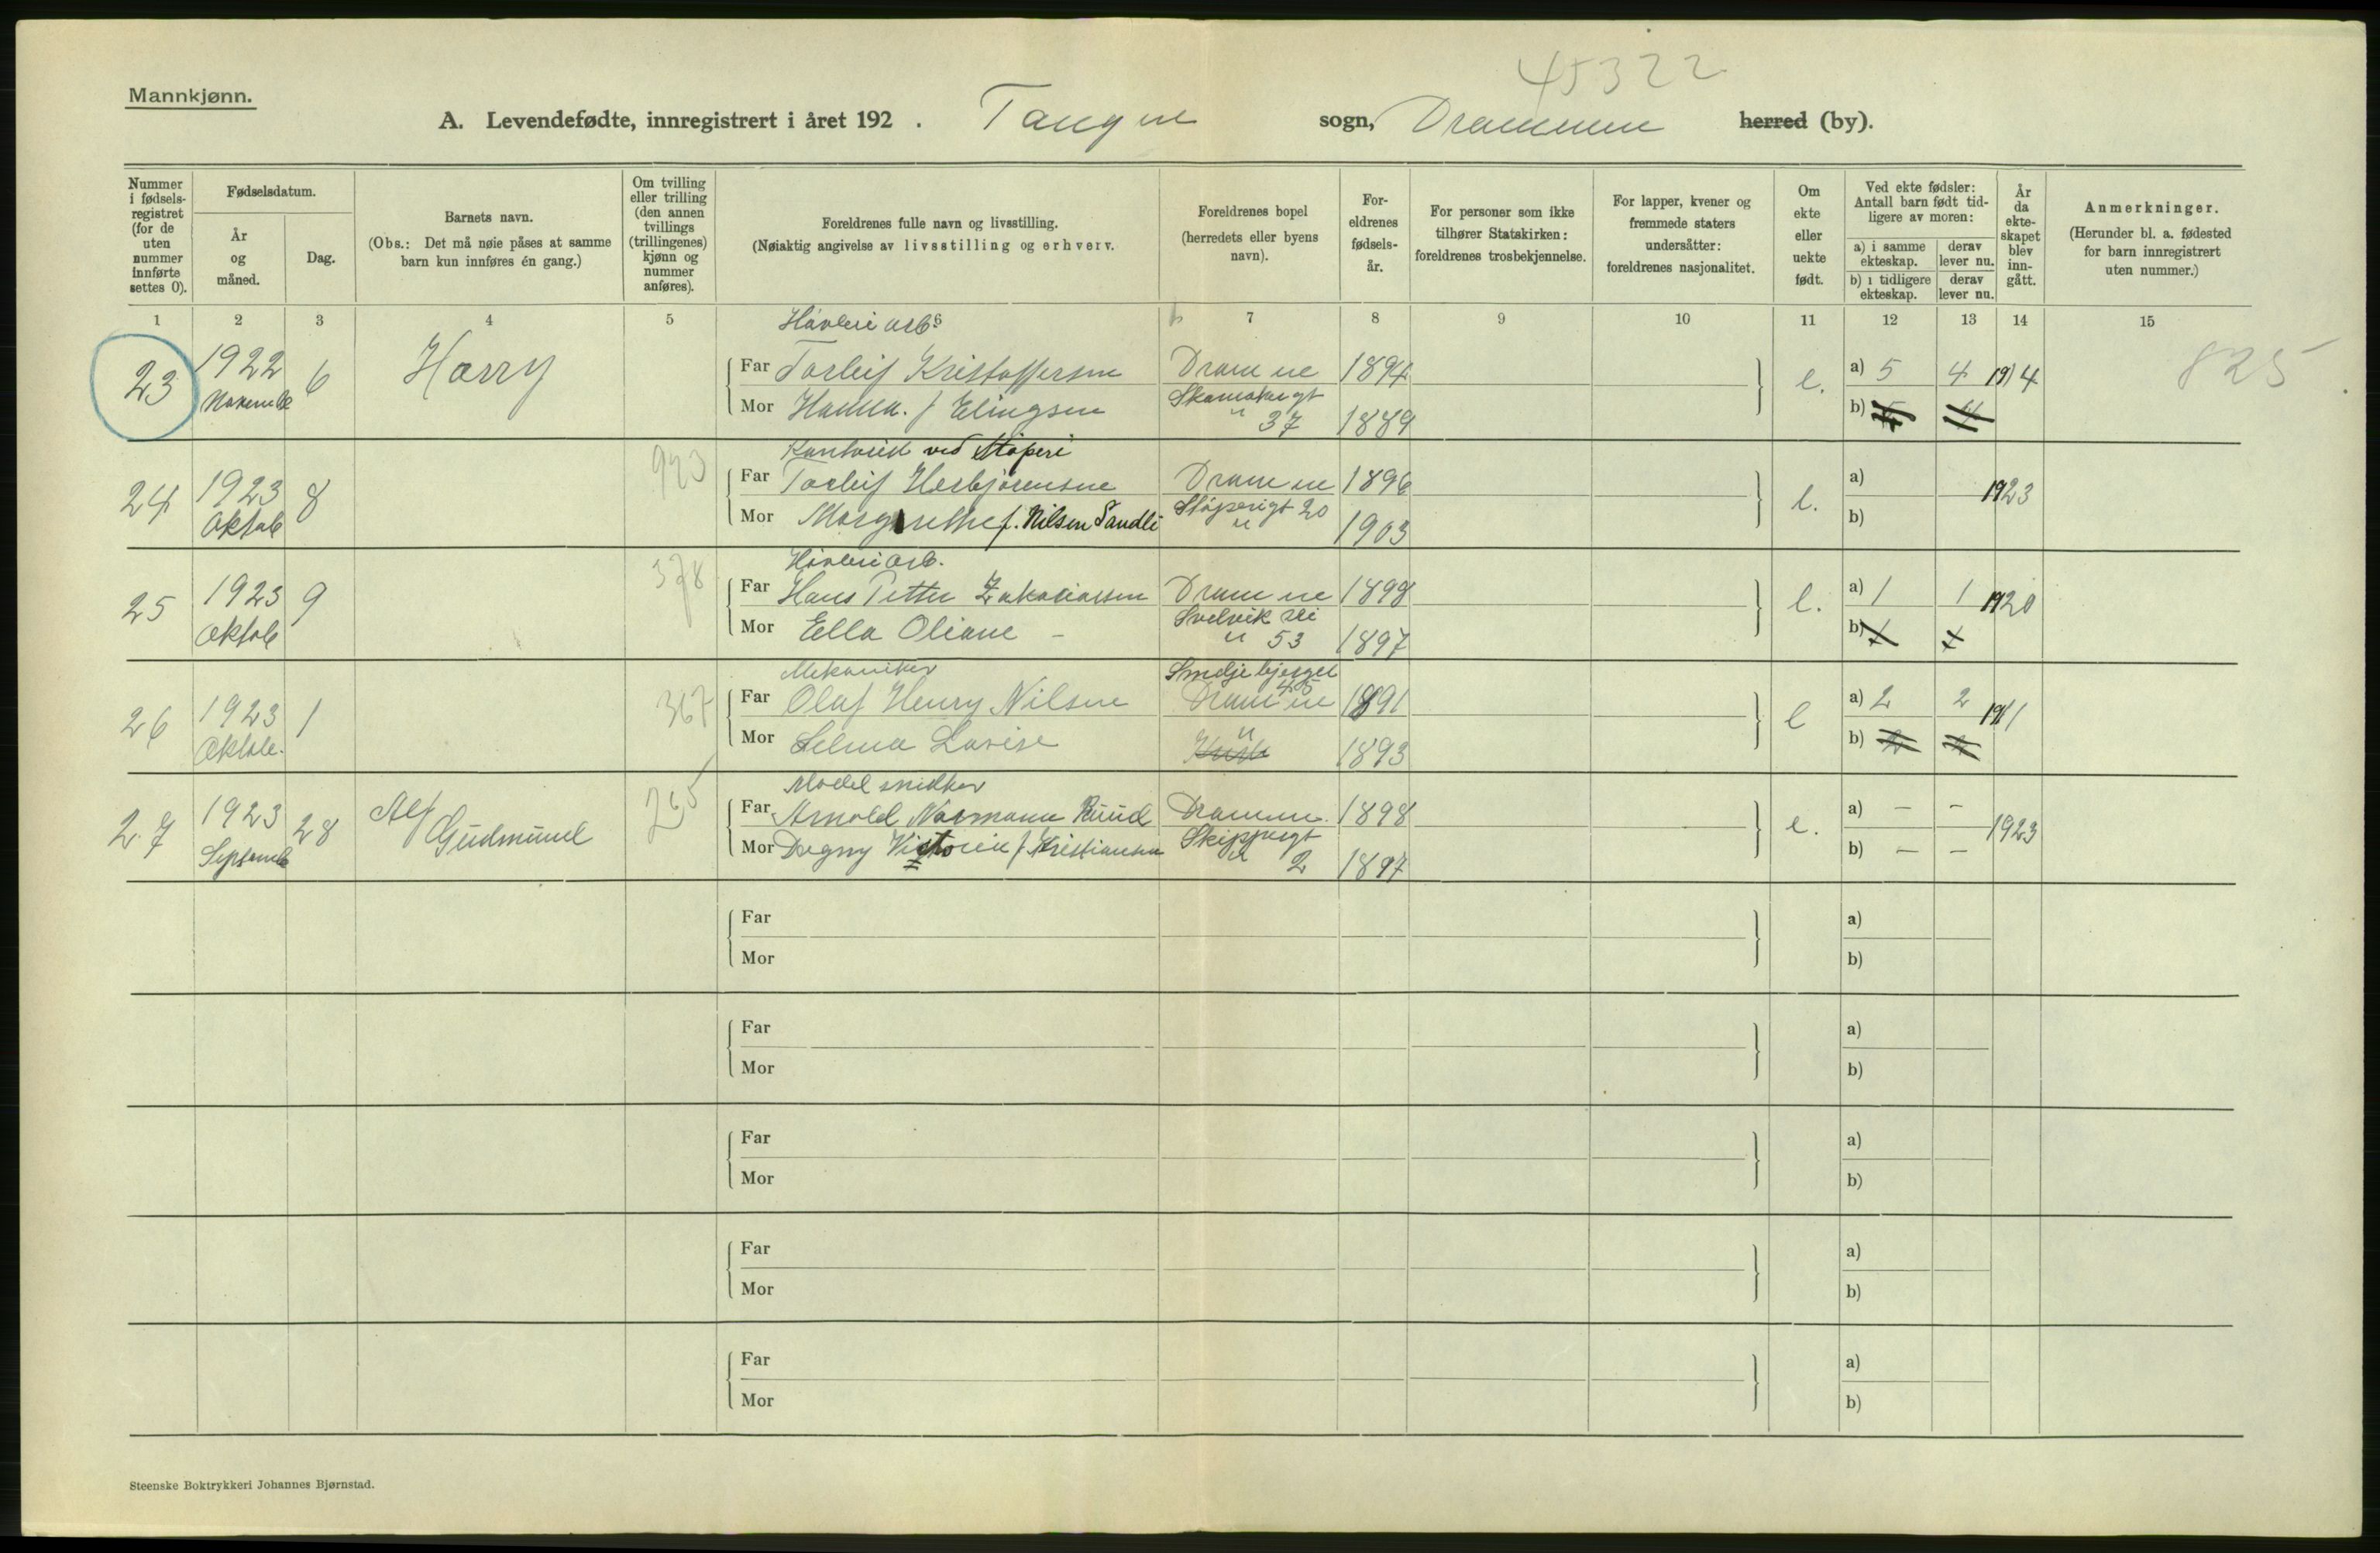 45322
Mannkjønn.
A. Levendefødte, innregistrert i året 192 . Tangen sogn, Drammen herred (by).
Nummer i fødselsregistret (for de uten nummer innførte settes 0).
Fødselsdatum.
År og måned.
Dag.
Barnets navn.
(Obs.: Det må nøie påses at samme barn kun innføres én gang.)
Om tvilling eller trilling (den annen tvillings (trillingenes) kjønn og nummer anføres).
Foreldrenes fulle navn og livsstilling.
(Nøiaktig angivelse av livsstilling og erhverv.
Foreldrenes bopel
(herredets eller byens navn).
Foreldrenes fødselsår.
For personer som ikke tilhører Statskirken: foreldrenes trosbekjennelse.
For lapper, kvener og fremmede staters undersåtter: foreldrenes nasjonalitet.
Om ekte eller uekte født.
Ved ekte fødsler: Antall barn født tidligere av moren:
a) i samme ekteskap. derav lever nu.
b) i tidligere ekteskap. derav lever nu.
År da ekteskapet blev inngått.
Anmerkninger.
(Herunder bl. a. fødested for barn innregistrert uten nummer.)
1 2 3 4 5 6 7 8 9 10 11 12 13 14 15
Høvleriarb.
23 1922 6 Harry Far Torleif Kristoffersen Drammen 1894 e. a) 5 4 1914 825
Novemb Mor Hanna f Elingsen 37 1889 b)
ved Støperi
24 1923 8 923 Far Torleif Herbjørnsen Drammen 1896 e. a) 1923
Oktob Mor Margrethe f. Nilsen Sandli Støperigt 20 " 1903 b)
Høvleriarb.
25 1923 9 378 Far Hans Petter Zakariassen Drammen 1898 e. a) 1 1 1920
Oktob Mor Ella Oliane - Svelvik vei " 53 1897 b)
Mekaniker Smedjebjerget 45
26 1923 1 367 Far Olaf Henry Nilsen Drammen 1891 e a) 2 2 1911
Oktob. Mor Selma Lovise " 1893 b)
Model snidker
27 1923 28 Alf Gudmund 265 Far Arnold Normann Ruud Drammen. 1898 e. a) - - 1923
Septemb Mor Dagny Victoria f Kristiansen Skippergt " 2 1897 b) - -
Far a)
Mor b)
Far a)
Mor b)
Far a)
Mor b)
Far a)
Mor b)
Far a)
Mor b)
Steenske Boktrykkeri Johannes Bjørnstad.